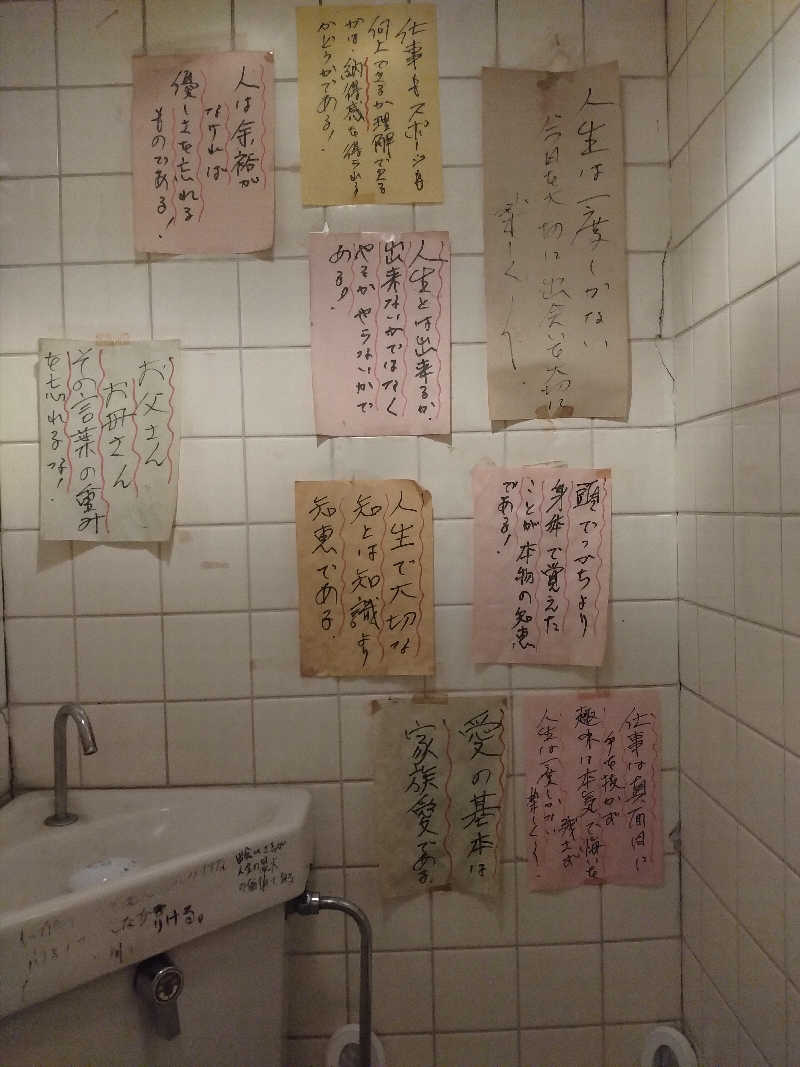 人は余裕が
なければ
優しさを忘れる
ものである!
仕事もスポーツも
何上できるか理解できる
かは、納得感を得られる
かどうかである!
人生は一度しかない
今日を大切に出会いを大切に
楽しくしで、
人生とは出来るか、
出来ないかではなく
やるかやらないかで
ある!
お父さん
お母さん
その言葉の重み
を忘れるな!
人生で大切な
知とは知識より
知恵である
頭でっかちより
身体で覚えた
ことが本物の知恵
である!
愛の基本は
家族愛である
仕事は真面目に
手を抜かず
趣味は本気で悔いを
残さず
人生は一度しかない
楽しく
人生の最大
の価値である
しなか
片ける。